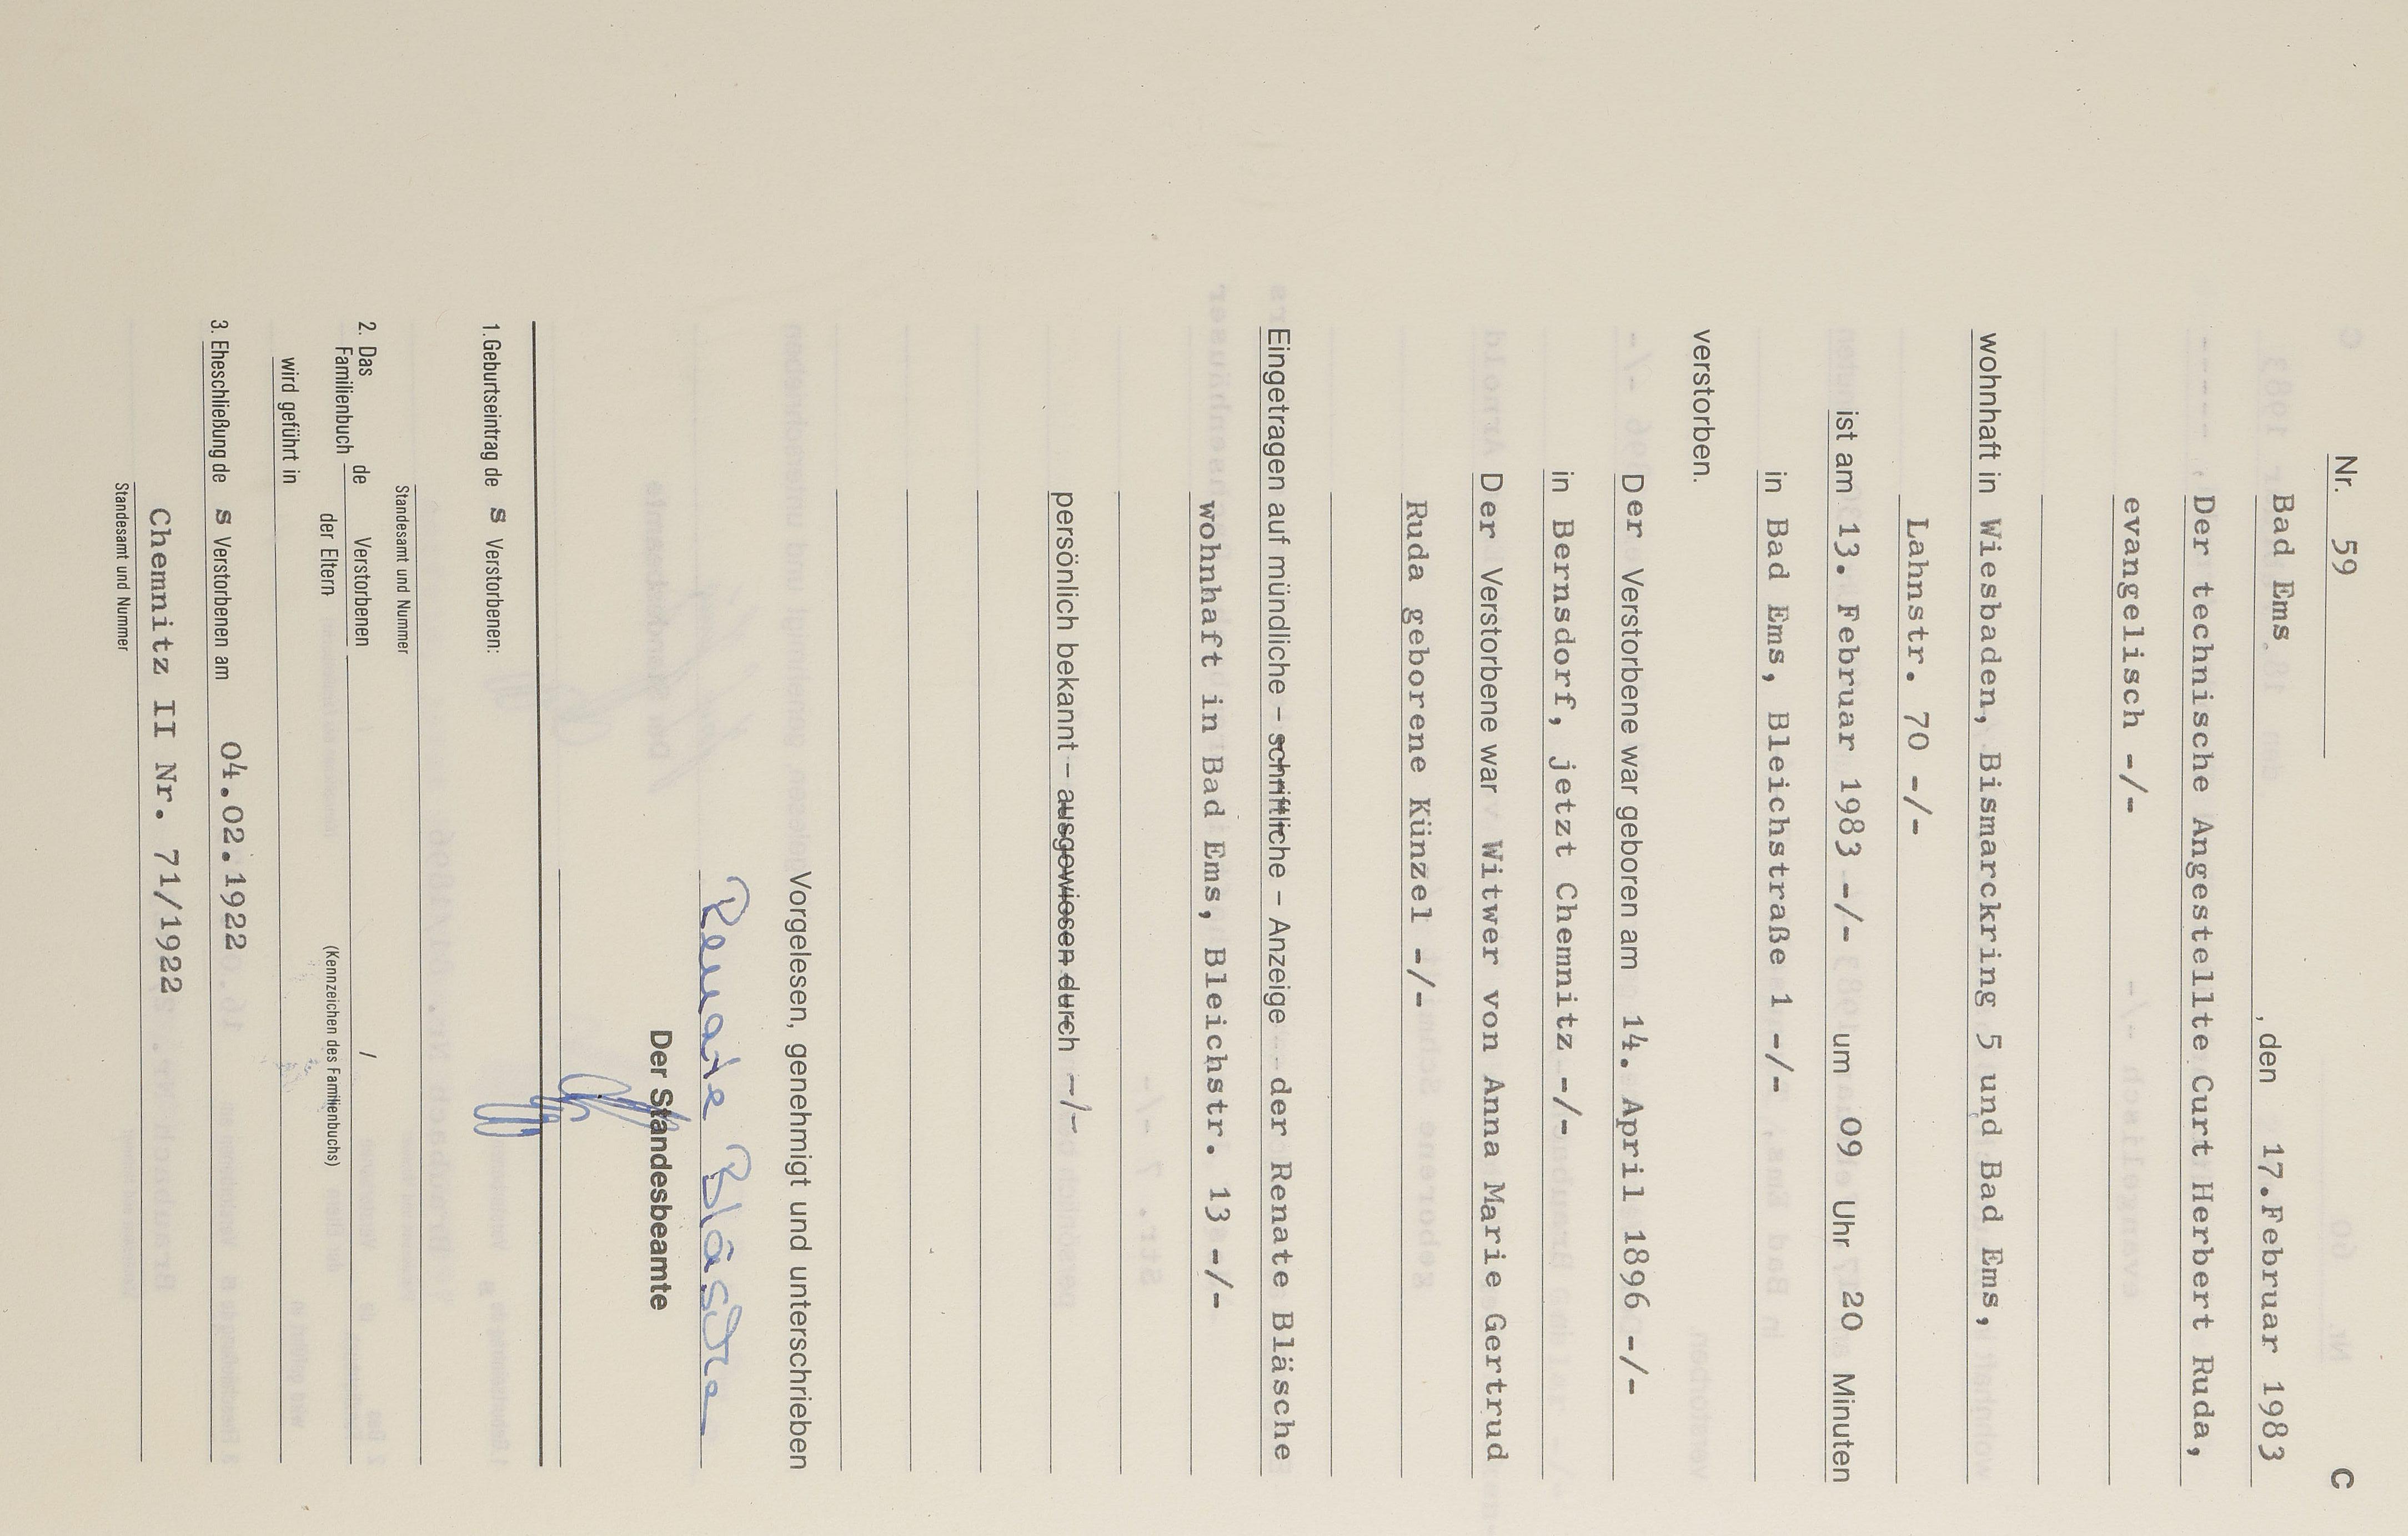 Nr. 59 C
Bad Ems, den 17.Februar 1983
Der technische Angestellte Curt Herbert Ruda,
evangelisch -/-
wohnhaft in Wiesbaden, Bismarckring 5 und Bad Ems,
Lahnstr. 70 -/-
ist am 13. Februar 1983 -/- um 09 Uhr 20 Minuten
in Bad Ems, Bleichstraße 1 -/-
verstorben.
Der Verstorbene war geboren am 14. April 1896 -/-
in Bernsdorf, jetzt Chemnitz -/-
Der Verstorbene war Witwer von Anna Marie Gertrud
Ruda geborene Künzel -/-
Eingetragen auf mündliche – schriftliche – Anzeige der Renate Bläsche
wohnhaft in Bad Ems, Bleichstr. 13 -/-
persönlich bekannt – ausgewiesen durch -/-
Vorgelesen, genehmigt und unterschrieben
Renate Bläsche
Der Standesbeamte
1. Geburtseintrag de s Verstorbenen:
Standesamt und Nummer
2. Das Familienbuch de Verstorbenen /
der Eltern (Kennzeichen des Familienbuchs)
wird geführt in
3. Eheschließung de s Verstorbenen am 04.02.1922
Chemnitz II Nr. 71/1922
Standesamt und Nummer